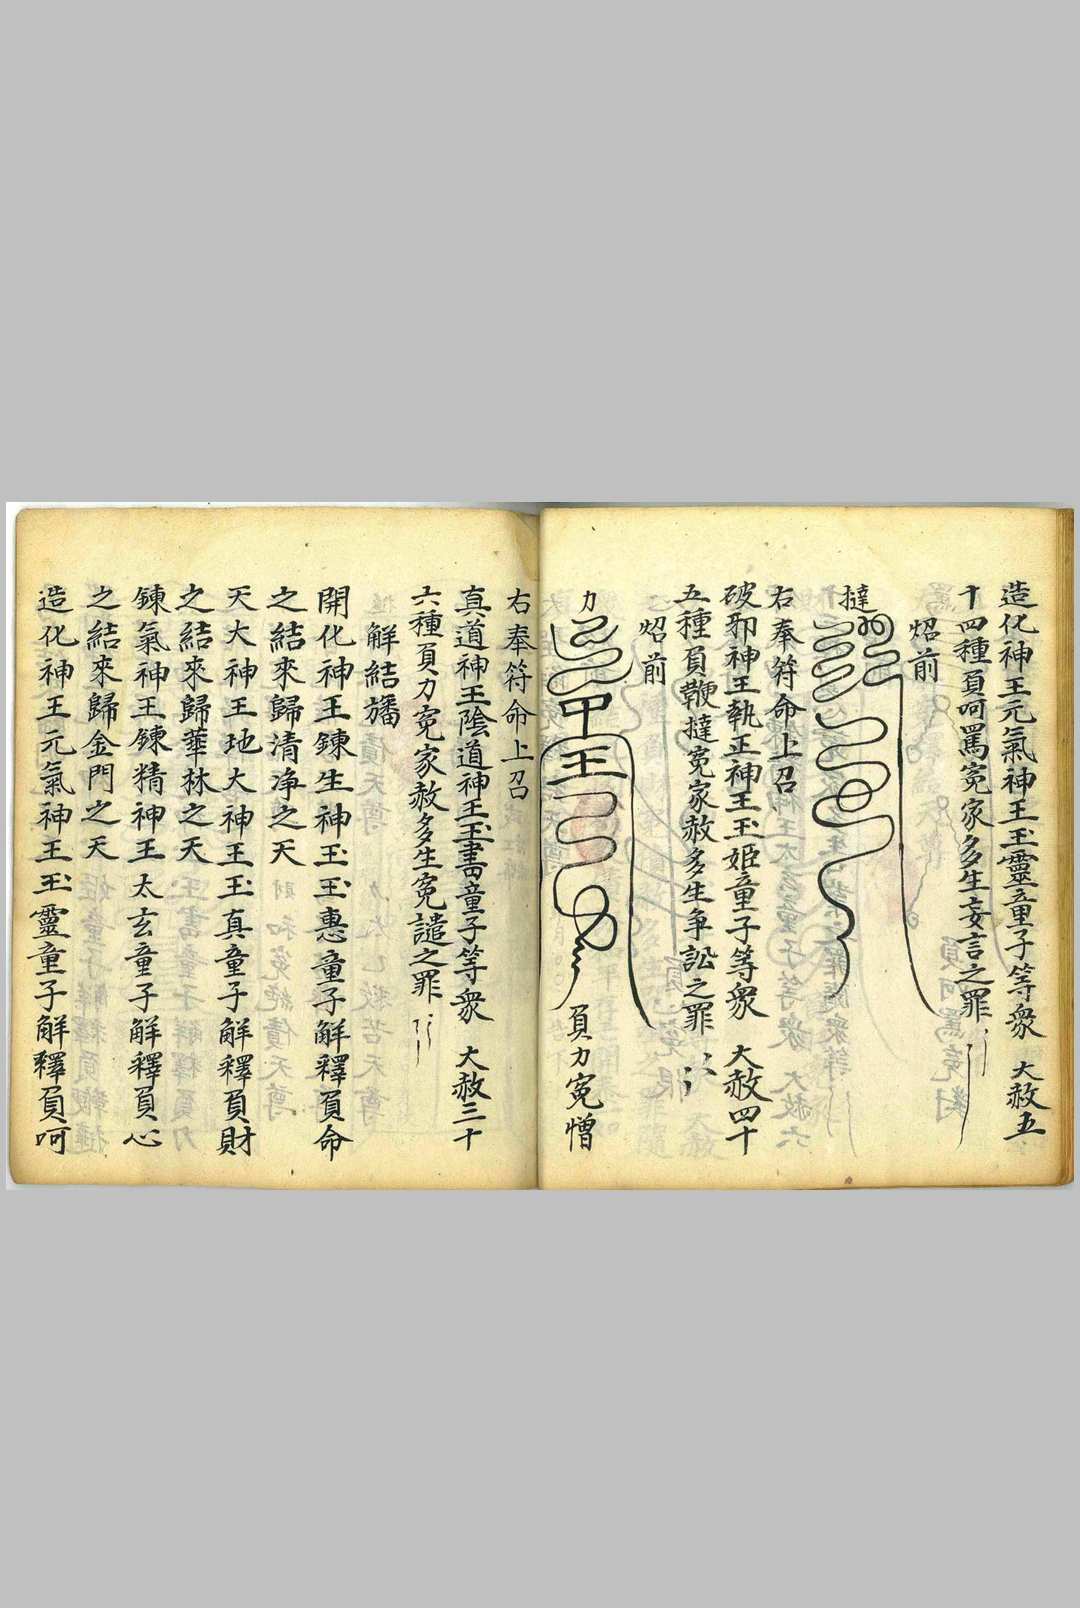 造化神王元氣神王玉靈童子等衆　大赦五
十四種負呵罵冤家多生妄言之罪
炤前
撻
右奉符命上召
破邪神王執正神王玉姬童子等衆　大赦四十
五種負鞭撻冤家赦多生爭訟之罪
炤前
力
負力冤憎
右奉符命上召
真道神王陰道神王玉書童子等衆　大赦三十
六種負力冤家赦多生冤譴之罪
解結旛
開化神王鍊生神王玉惠童子解釋負命
之結來歸清净之天
天大神王地大神王玉真童子解釋負財
之結來歸華林之天
鍊氣神王鍊精神王太玄童子解釋負心
之結來歸金門之天
造化神王元氣神王玉靈童子解釋負呵